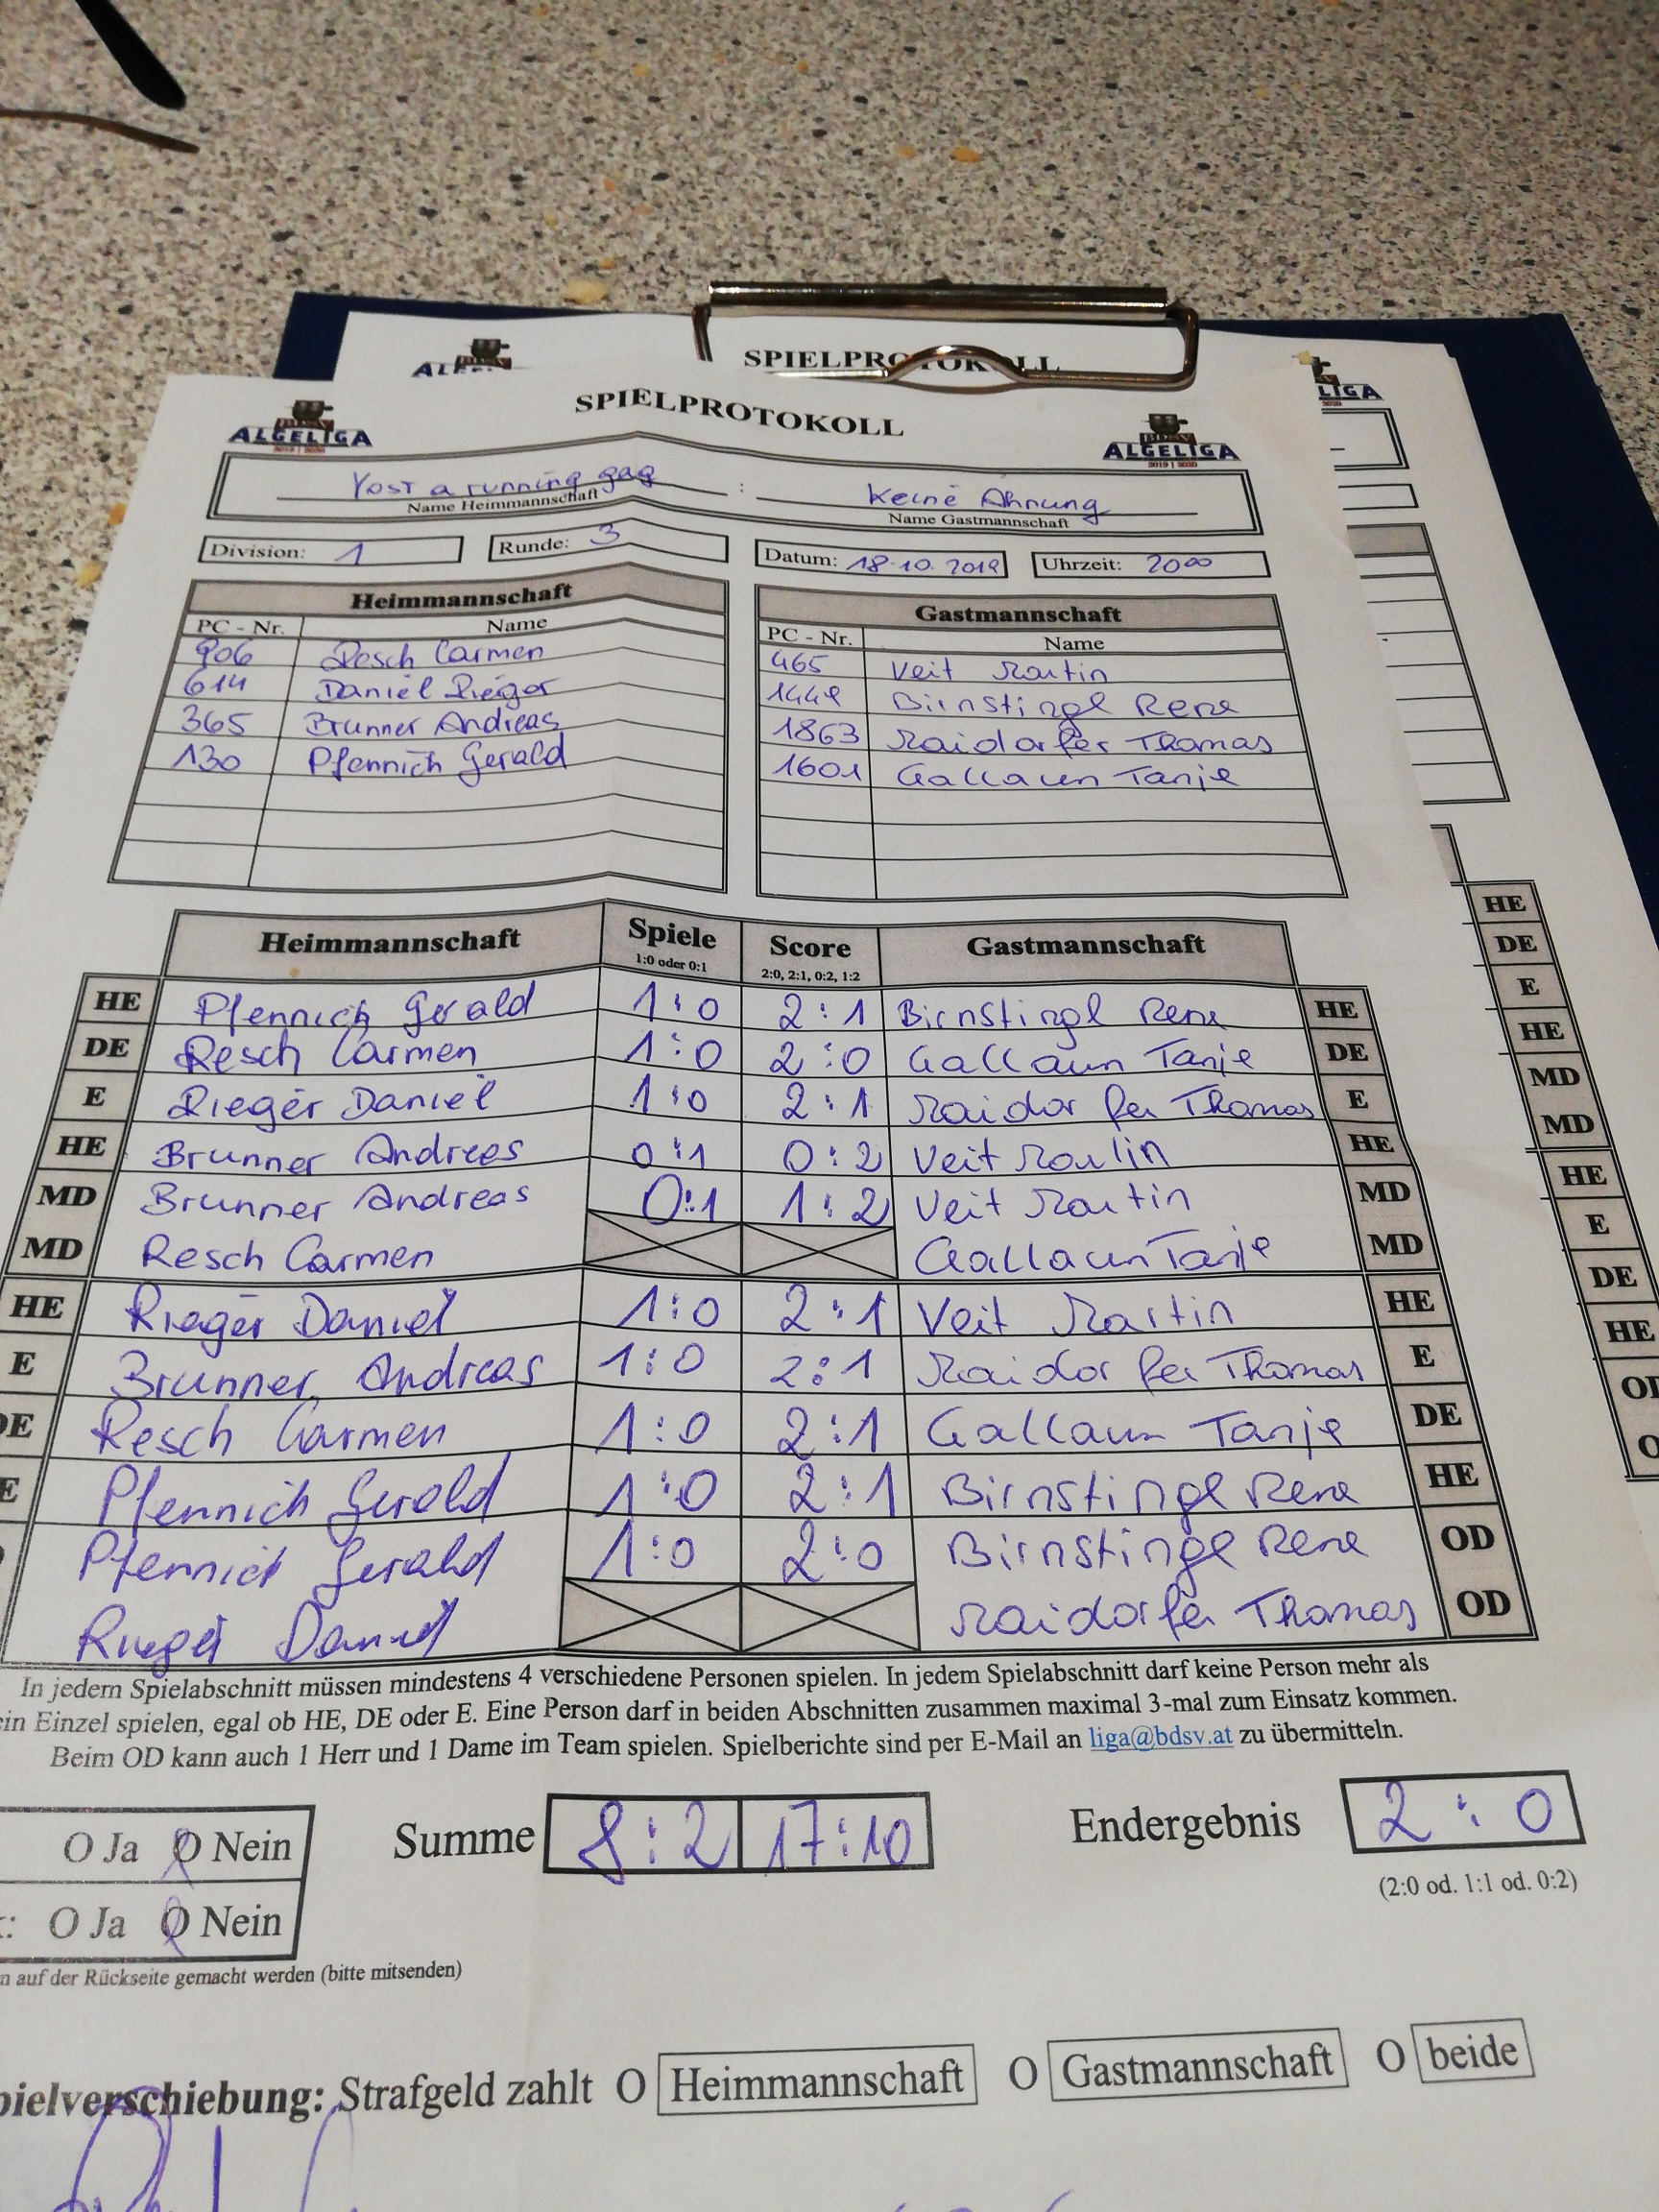 SPIELPROTOKOLL
SPIELPROTOKOLL
ALGELIGA
2019 | 2020
ALGELIGA
2019 | 2020
LIGA
Yost a running gag : Keine Ahnung
Name Heimmannschaft Name Gastmannschaft
Division: 1 Runde: 3 Datum: 18.10.2019 Uhrzeit: 20 00
Heimmannschaft Gastmannschaft
PC - Nr. Name PC - Nr. Name
906 Resch Carmen 465 Veit Martin
614 Daniel Rieger 1449 Birnstingl Rene
365 Brunner Andreas 1863 Maidorfer Thomas
130 Pfennich Gerald 1601 Gallaun Tanja
Heimmannschaft Spiele Score Gastmannschaft
1:0 oder 0:1 2:0, 2:1, 0:2, 1:2
HE Pfennich Gerald 1:0 2:1 Birnstingl Rene HE
DE Resch Carmen 1:0 2:0 Gallaun Tanja DE
E Rieger Daniel 1:0 2:1 Maidorfer Thomas E
HE Brunner Andreas 0:1 0:2 Veit Martin HE
MD Brunner Andreas 0:1 1:2 Veit Martin MD
MD Resch Carmen Gallaun Tanja MD
HE Rieger Daniel 1:0 2:1 Veit Martin HE
E Brunner Andreas 1:0 2:1 Maidorfer Thomas E
DE Resch Carmen 1:0 2:1 Gallaun Tanja DE
E Pfennich Gerald 1:0 2:1 Birnstingl Rene HE
Pfennich Gerald 1:0 2:0 Birnstingl Rene OD
Rieger Daniel Maidorfer Thomas OD
HE
DE
E
HE
MD
MD
HE
E
DE
HE
In jedem Spielabschnitt müssen mindestens 4 verschiedene Personen spielen. In jedem Spielabschnitt darf keine Person mehr als
ein Einzel spielen, egal ob HE, DE oder E. Eine Person darf in beiden Abschnitten zusammen maximal 3-mal zum Einsatz kommen.
Beim OD kann auch 1 Herr und 1 Dame im Team spielen. Spielberichte sind per E-Mail an liga@bdsv.at zu übermitteln.
O Ja O Nein Summe 8:2 17:10 Endergebnis 2:0
(2:0 od. 1:1 od. 0:2)
: O Ja O Nein
n auf der Rückseite gemacht werden (bitte mitsenden)
pielverschiebung: Strafgeld zahlt O Heimmannschaft O Gastmannschaft O beide